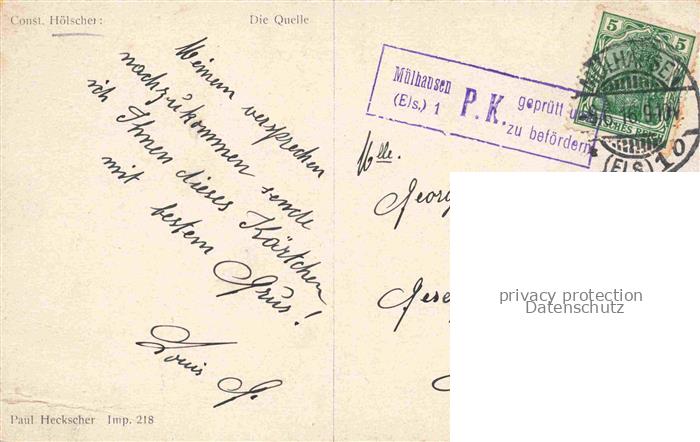 Const. Hölscher:
Die Quelle
Meinem versprechen
nachzukommen sende
ich Ihnen dieses Kärtchen
mit bestem
Grus!
Louis G.
Paul Heckscher Imp. 218
Mülhausen
(Els.) 1
P.K.
geprüft u
zu befördern
5
5
MÜLHAUSEN
(ELS)
Mlle.
Georg
privacy protection
Datenschutz